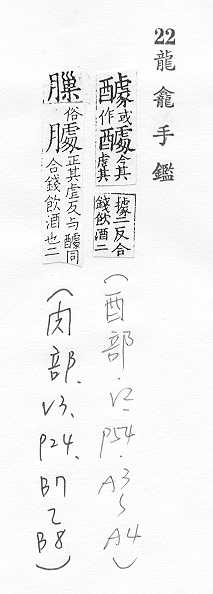 22 龍龕手鑑
或作醵今其虐其
據二反合錢飲酒二
(酉部.V2.P54.A3~A4)
俗臄正其虐反与醵同
合錢飲酒也二
(肉部.V3.P24.B7~B8)